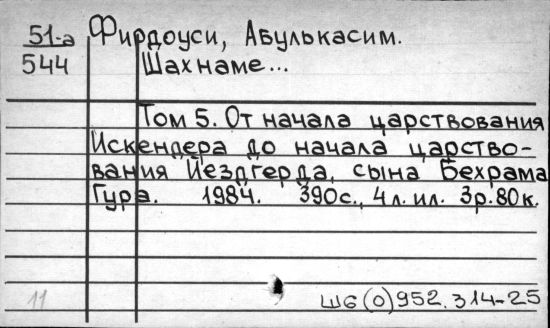 51-а
544
Фирдоуси, Абулькасим.
Шахнаме...
Том 5. От начала царствования
Искендера до начала царство-
вания Йездгерда, сына Бехрама
Гура. 1984. 390с., 4 л. ил. 3р.80к.
11
Ш6(0)952.314-25